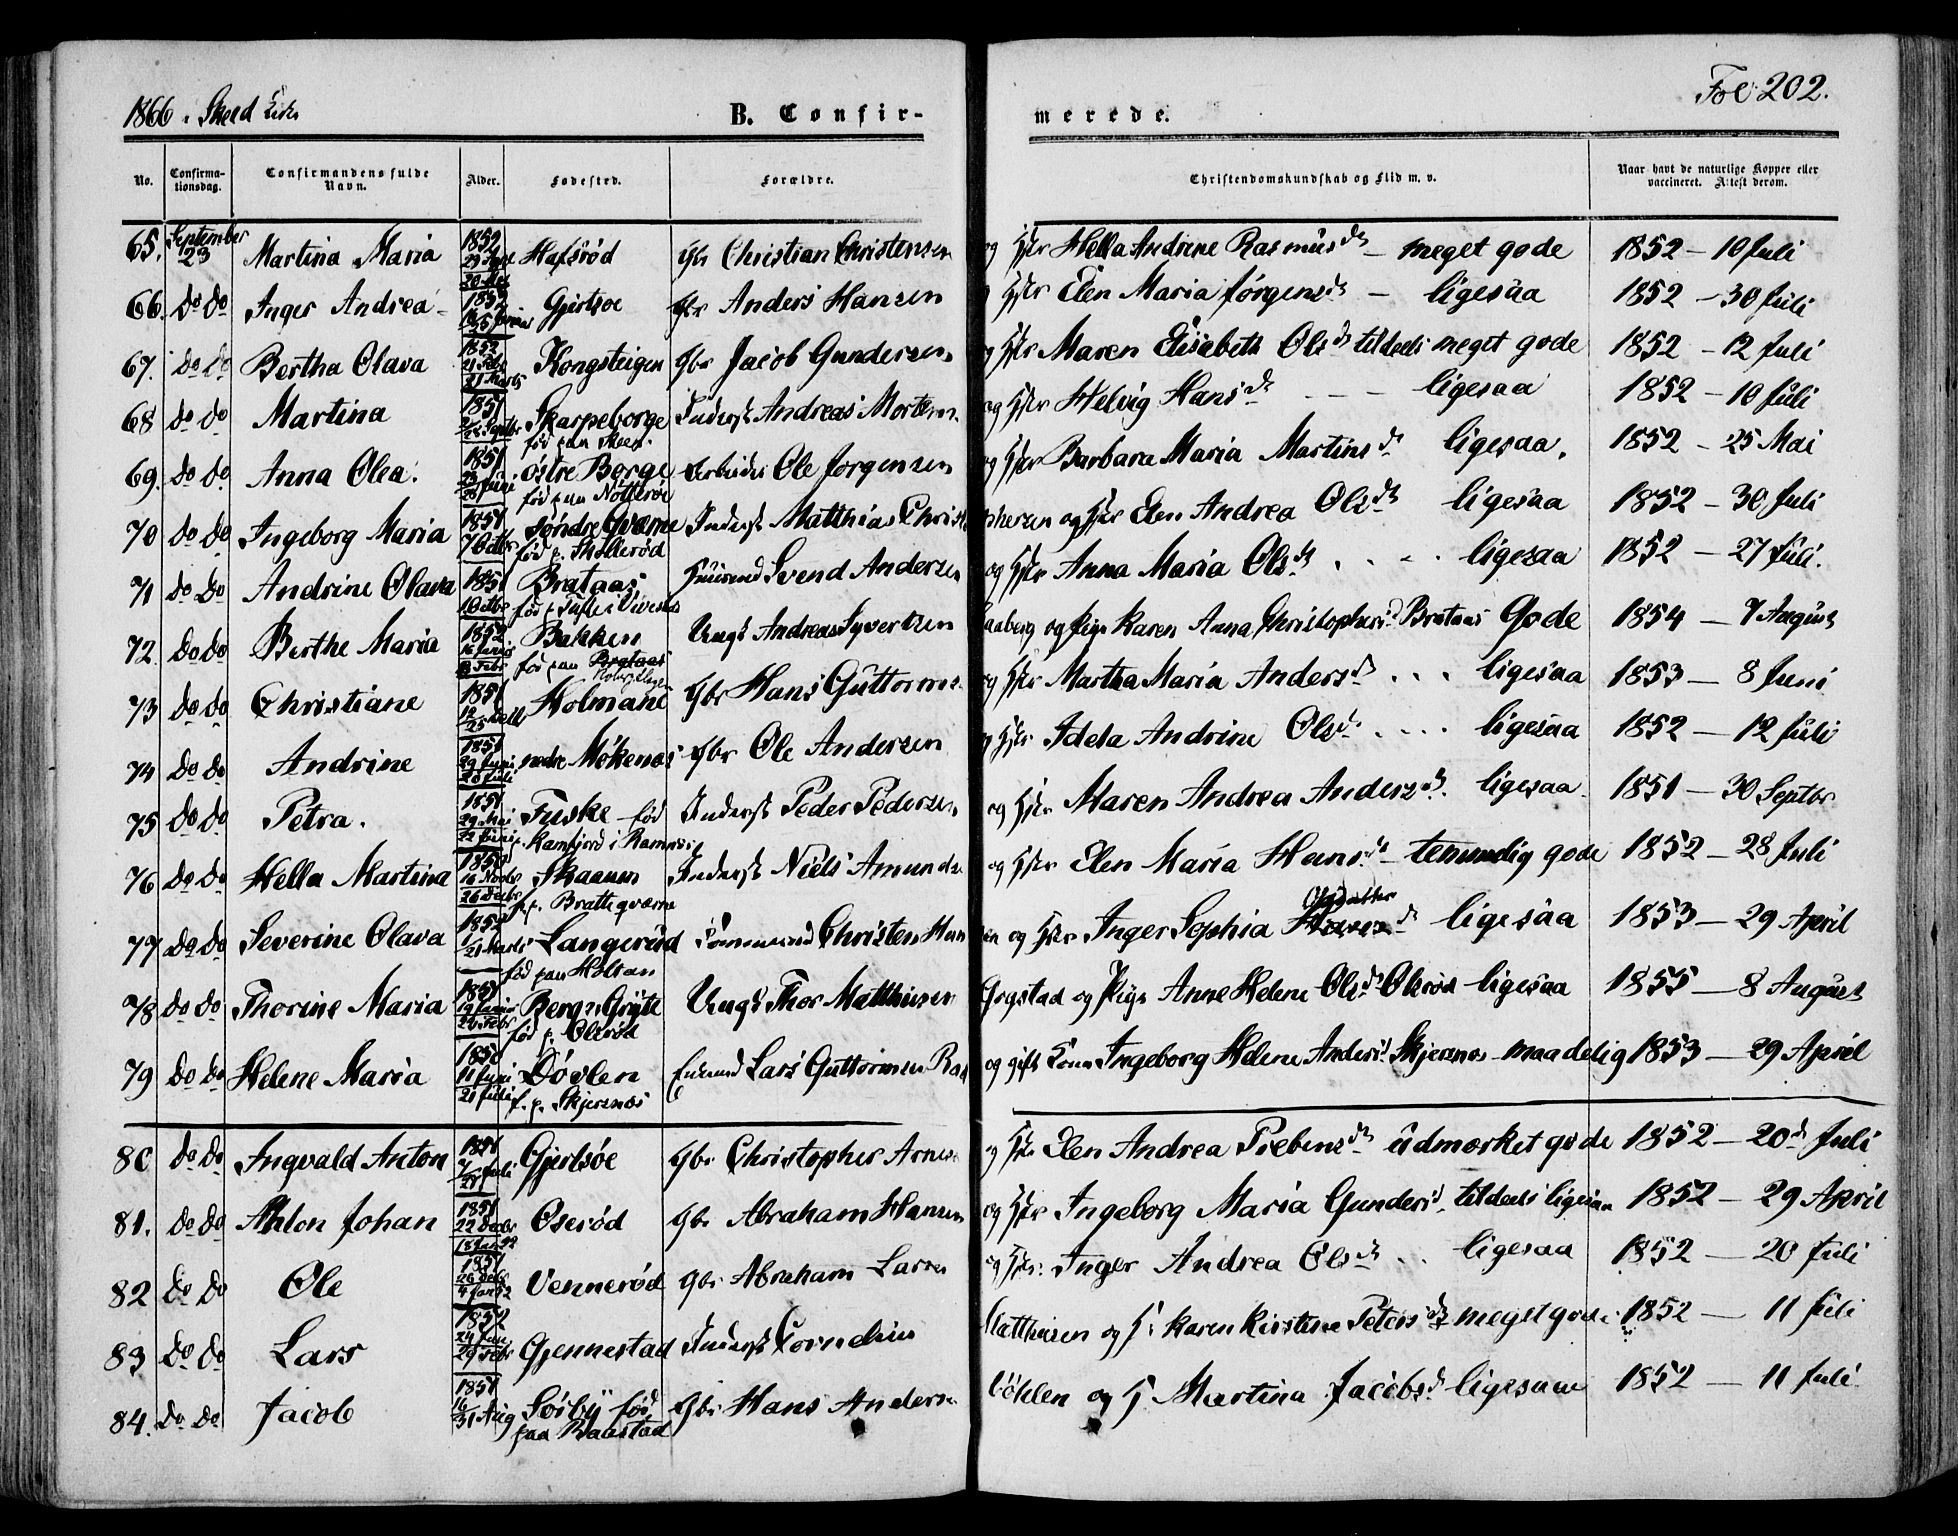 1866 . Skeed Kirke
B. Confir-
merede.
Fol: 202.
No.
Confirma-
tionsdag.
Confirmandens fulde
Navn.
Alder.
Fødested.
Forældre.
Christendomskundskab og Flid m. v.
Naar havt de naturlige Kopper eller
vaccineret. Attest derom.
65. September 23 Martina Maria 1852 Hafsrød Gbr Christian Christensen og Hstr Hella Andrine Rasmusd. – meget gode 1852 – 10 Juli
66. Do Do Inger Andrea 1852 Gjertsøe Gbr Anders Hansen Hstr Elen Maria Jørgensd. – ligesaa 1852 – 30 Juli
67. Do Do Bertha Olava 1852 Kongsteigen Gbr Jacob Gundersen og Hstr Maren Elisebeth Olsd. tildeels meget gode 1852 – 12 Juli
68 Do Do Martina 1851 Skarpeborge Inderst Andreas Mortens. og Hstr Helvig Hansd. – – ligesaa 1852 – 10 Juli
fød paa Skeen.
69. Do Do Anna Olea. 1851 østre Berge Arbeider Ole Jørgensen og Hstr Barbara Maria Martinsd. ligesaa. 1852 – 25 Mai
fød paa Nøtterøe
70 Do Do Ingeborg Maria 1851 7 Octbr søndre Qværne Inderst Matthias Christophersen og Hstr Elen Andrea Olsd. ligesaa 1852 – 30 Juli
fød p. Skillerød
71 Do Do Andrine Olava 1851 Brataas Huusmand Svend Andersen og Hstr Anna Maria Olsd. . . . ligesaa 1852 – 27 Juli.
72. Do Do Berthe Maria 1852 Bakken Ungk Andreas Syvertsen Aaberg og Pige Karen Anna Christophersd. Brataas Gode 1854 – 7 August
fød paa Brataas
73 Do Do Christiane 1851 Holmane Gbr Hans Guttorms. og Hstr Martha Maria Andersd. . . . ligesaa 1853 – 8 Juni
74 Do Do Andrine 1851 29 Juni 20 Juli nedre Møkenæs Gbr Ole Andersen og Hstr Idela Andrine Olsd. . . . . ligesaa 1852 – 12 Juli
75 Do Do Petra. 1851 29 Mai 22 Juni Fuske – fød Inderst Peder Pedersen og Hstr Maren Andrea Andersd. ligesaa. 1851 – 30 Septbr
p. Ramfjord i Ramnæs
76 Do Do Hella Martina 1850 26 Decbr Skaanen Inderst Niels Amunds. og Hstr Elen Maria Hansd. – temmelig gode 1852 – 28 Juli
f. p. Bratteqværne
77 Do Do Severine Olava 1852 Langerød Tømmermand Christen Hansen og Hstr Inger Sophia Olsdatter ligesaa 1853 – 29 April
fød paa Holtan
78 Do Do Thorine Maria 1851 Berg n. Gryte Ungk Thor Matthisen Gogstad og Pige Anne Helene Olsd. Olerød ligesaa 1855 – 8 August
fød p. Olerød
79 Do Do Helene Maria 1850 11 Juni 21 Juli Døvlen Enkemand Lars Guttormsen og gift Kone Ingeborg Helene Andersd. Skjersnæs – maadelig 1853 – 29 April
f. p. Skjersnæs
80 Do Do Ingvald Anton 1851 Gjertsøe Gbr Christopher Arnes. og Hstr Elen Andrea Prebensd. udmærket gode 1852 – 20d Juli
81. Do Do Anton Johan 1851 22 Decbr 18 Jan 52 Oserød Gbr Abraham Hansen og Hstr Ingeborg Maria Gundersd. tildeels ligesaa 1852 – 29 April
82 Do Do Ole 1851 4 Jan 52 Vennerød Gbr Abraham Larsen og Hstr. Inger Andrea Olsd. . . ligesaa 1852 – 20 Juli
83 Do Do Lars 1852 Gjennestad Inderst Cornelius Matthisen og H. Karen Kirstine Petersd. meget gode 1852 – 11 Juli
84. Do Do Jacob 1851 16 31 Aug Sørby fød Gbr Hans Anders. og H Martina Jacobsd. ligesaa 1852 – 11 Juli
paa Baastad